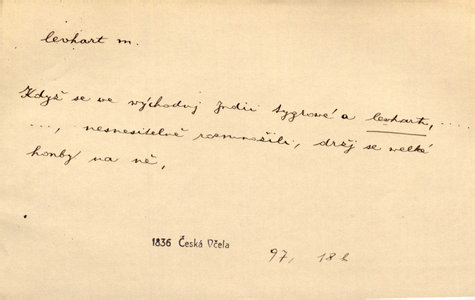 levhart m.
Když se ve východnj Jndii tygrové a levharti, ....
..., nesnesitelně rozmnožili, držj se welké
honby na ně,
1836 Česká Včela
97, 18 b